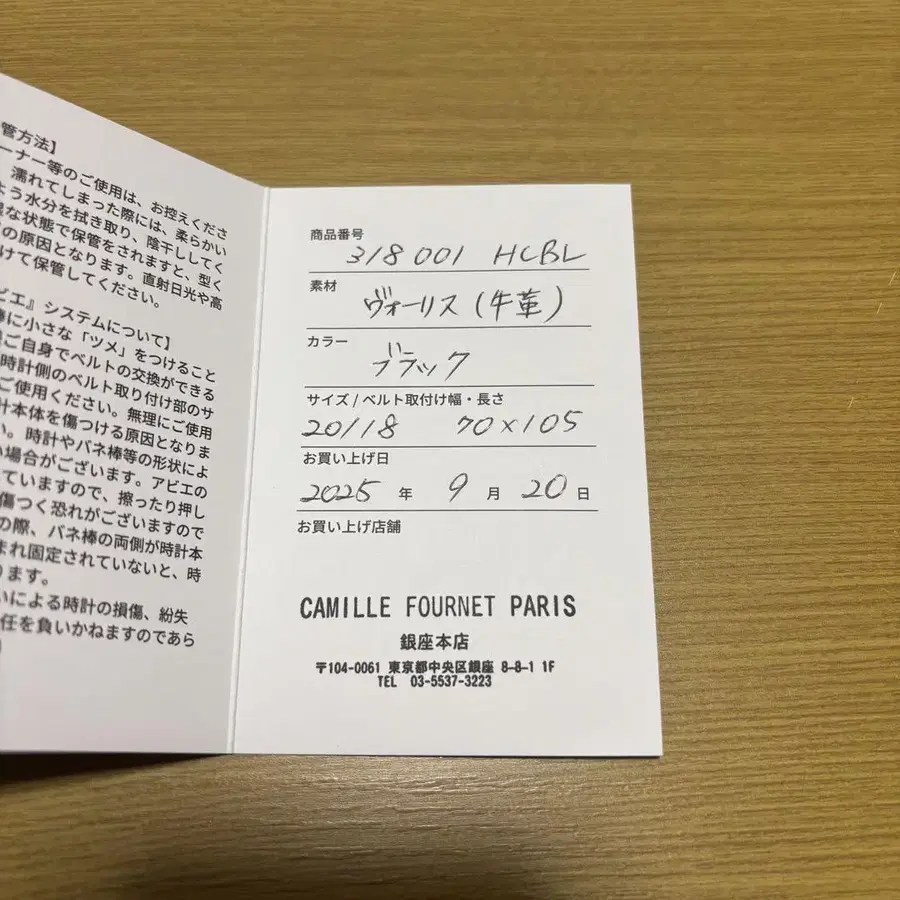 管方法】
ーナー等のご使用は、お控えくださ
濡れてしまった際には、柔らかい
よう水分を拭き取り、陰干ししてく
湿な状態で保管をされますと、型く
の原因となります。直射日光や高
けて保管してください。
ビエ』システムについて】
棒に小さな「ツメ」をつけること
ご自身でベルトの交換ができる
時計側のベルト取り付け部のサ
ご使用ください。無理にご使用
計本体を傷つける原因となりま
い。時計やバネ棒等の形状によ
い場合がございます。アビエの
ていますので、擦ったり押し
傷つく恐れがございますので
の際、バネ棒の両側が時計本
まれ固定されていないと、時
ります。
いによる時計の損傷、紛失
任を負いかねますのであら
商品番号
318 001 HCBL
素材
ヴォーリス(牛革)
カラー
ブラック
サイズ / ベルト取付け幅・長さ
20/18 70×105
お買い上げ日
2025 年 9 月 20 日
お買い上げ店舗
CAMILLE FOURNET PARIS
銀座本店
〒104-0061 東京都中央区銀座 8-8-1 1F
TEL 03-5537-3223